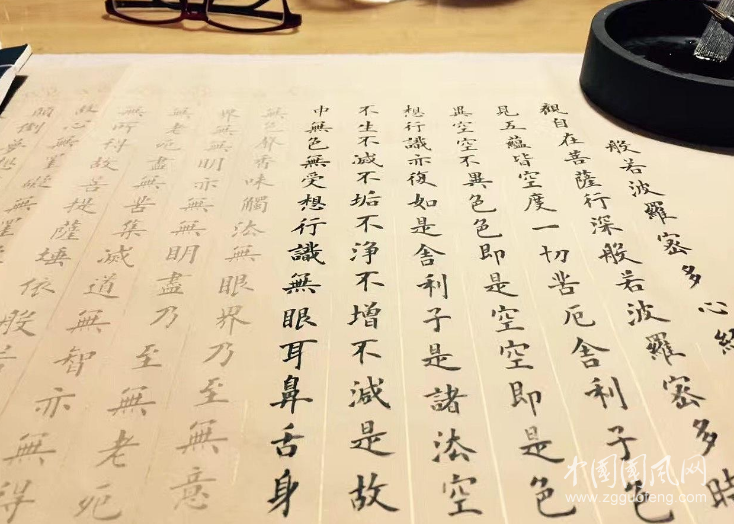 般若波羅密多心經
觀自在菩薩行深般若波羅密多時
見五蘊皆空度一切苦厄舍利子色
異空空不異色色即是空空即是色
想行識亦復如是舍利子是諸法空
不生不滅不垢不淨不增不減是故
中無色無受想行識無眼耳鼻舌身
無色聲香味觸法無眼界乃至無意
界無無明亦無無明盡乃至無老死
無老死盡無苦集滅道無智亦無得
無所得故菩提薩埵依般若
故心無罣礙無罣
顛倒夢想
中国国风网
www.zgguofeng.com